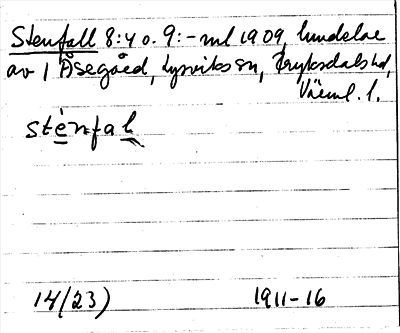 Stenfall 8:4 o. 9:- ml 1909, lundelar
av 1 Åsegård, Lysviks sn, Fryksdals hd,
Värml. l.
sténfaḻ
14/23) 1911-16